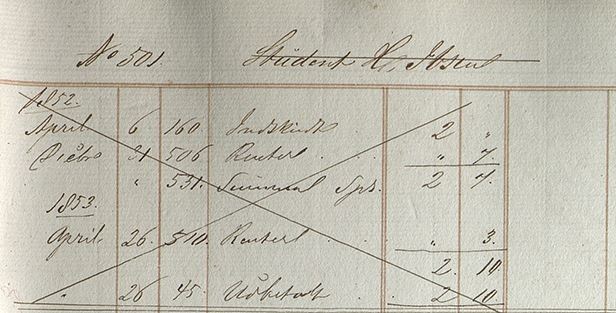 No 501. Student H. Ibsen
1852.
April 6 160 Indskudt . 2 "
31 506 Renter . . " 7.
" 531. Summa Spd. 2 7.
1853.
April 26. 510 Renter . . " 3.
2. 10
" 26 45. Udbetalt . 2 10.